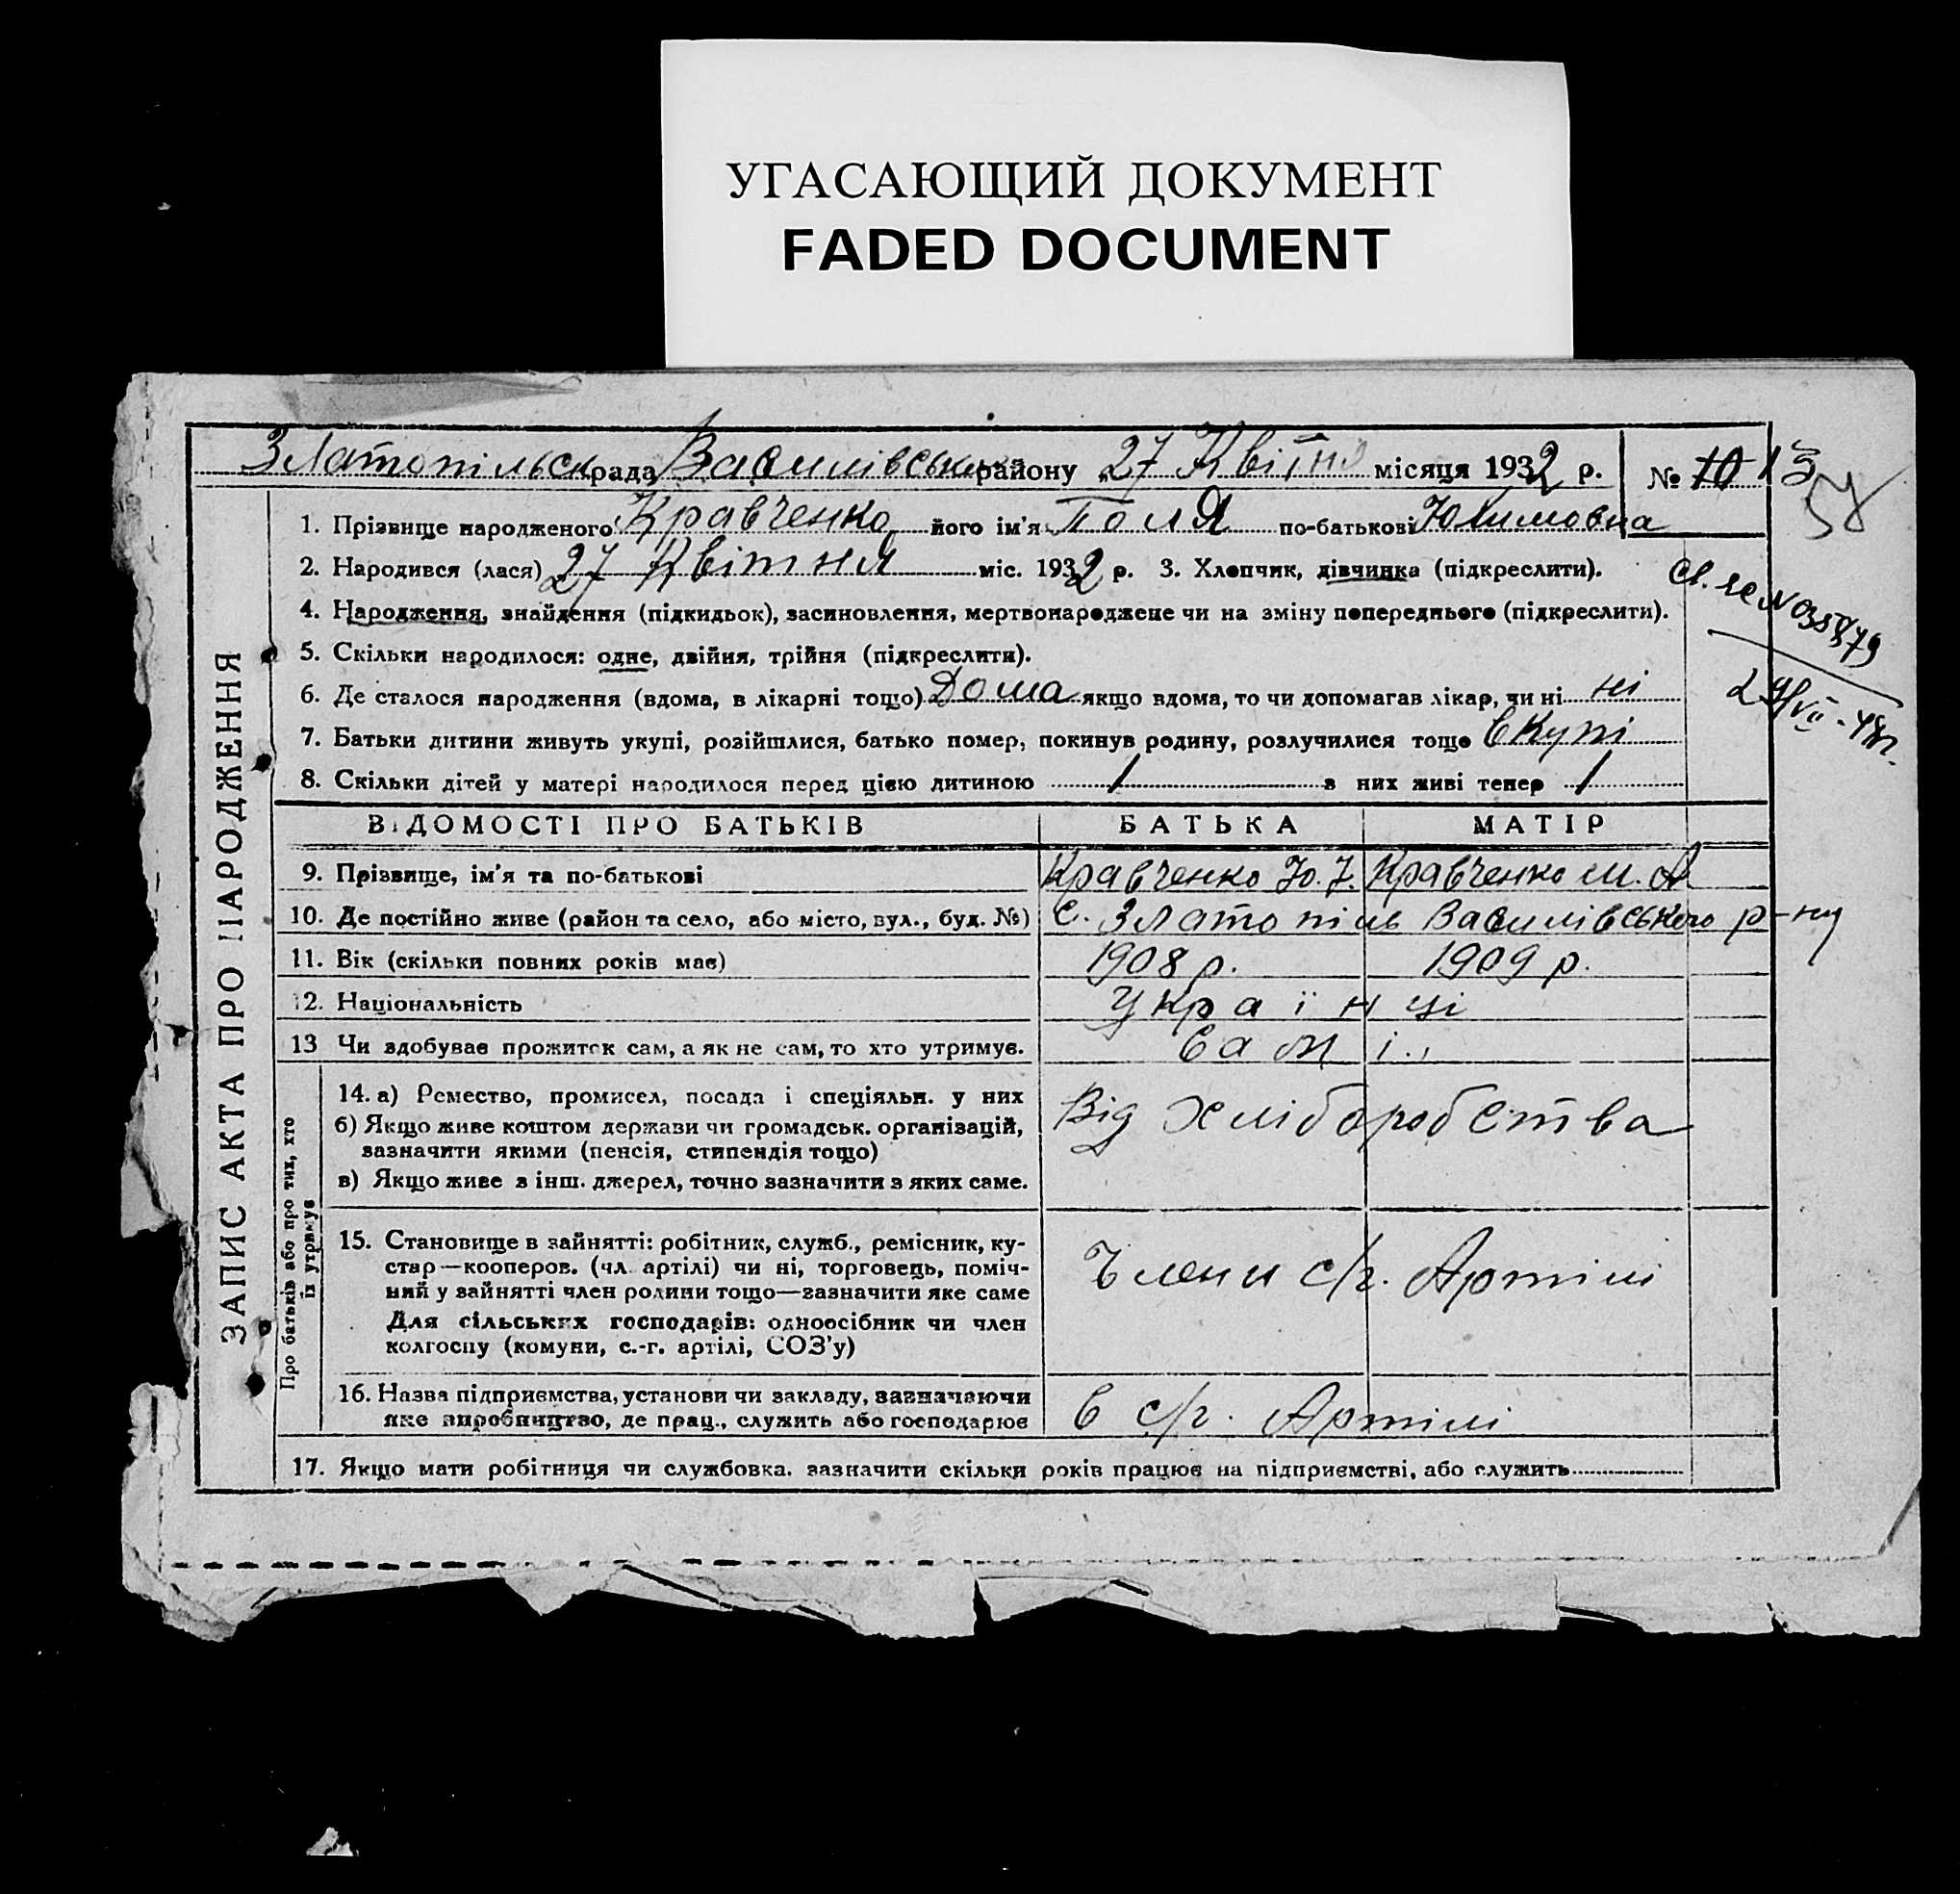 УГАСАЮЩИЙ ДОКУМЕНТ
FADED DOCUMENT
Златопільськ рада Василівського району „27 Квітня місяця 1932 р. № 10 13
57
1. Прізвище народженого Кравченко його ім'я Поля по-батькові Юхимовна
2. Народився (лася) 27 Квітня міс. 1932 р. 3. Хлопчик, дівчинка (підкреслити).
4. Народження, знайдення (підкидьок), засиновлення, мертвонароджене чи на зміну попереднього (підкреслити).
5. Скільки народилося: одне, двійня, трійня (підкреслити).
6. Де сталося народження (вдома, в лікарні тощо) Дома якщо вдома, то чи допомагав лікар, чи ні ні
7. Батьки дитини живуть укупі, розійшлися, батько помер, покинув родину, розлучилися тощо вкупі
8. Скільки дітей у матері народилося перед цією дитиною 1 з них живі тепер 1
ЗАПИС АКТА ПРО НАРОДЖЕННЯ
ВІДОМОСТІ ПРО БАТЬКІВ БАТЬКА МАТІР
9. Прізвище, ім'я та по-батькові Кравченко Ю. Кравченко М. А
10. Де постійно живе (район та село, або місто, вул., буд. №) С. Златопіль Василівського р-ну
11. Вік (скільки повних років має) 1908 р. 1909 р.
12. Національність Українці
13 Чи здобуває прожиток сам, а як не сам, то хто утримує. Самі
Про батьків або про тих, хто
їх утримує
14. а) Ремество, промисел, посада і спеціяльн. у них Від хліборобства
б) Якщо живе коштом держави чи громадськ. організацій,
зазначити якими (пенсія, стипендія тощо)
в) Якщо живе з інш. джерел, точно зазначити з яких саме.
15. Становище в зайнятті: робітник, служб., ремісник, ку-
стар—кооперов. (чл. артілі) чи ні, торговець, поміч- Члени с/г. Артілі
ний у зайнятті член родини тощо—зазначити яке саме
Для сільських господарів: одноосібник чи член
колгоспу (комуни, с.-г. артілі, СОЗ'у)
16. Назва підприємства, установи чи закладу, зазначаючи
яке виробництво, де прац., служить або господарює в с/г. Артілі
17. Якщо мати робітниця чи службовка, зазначити скільки років працює на підприємстві, або служить